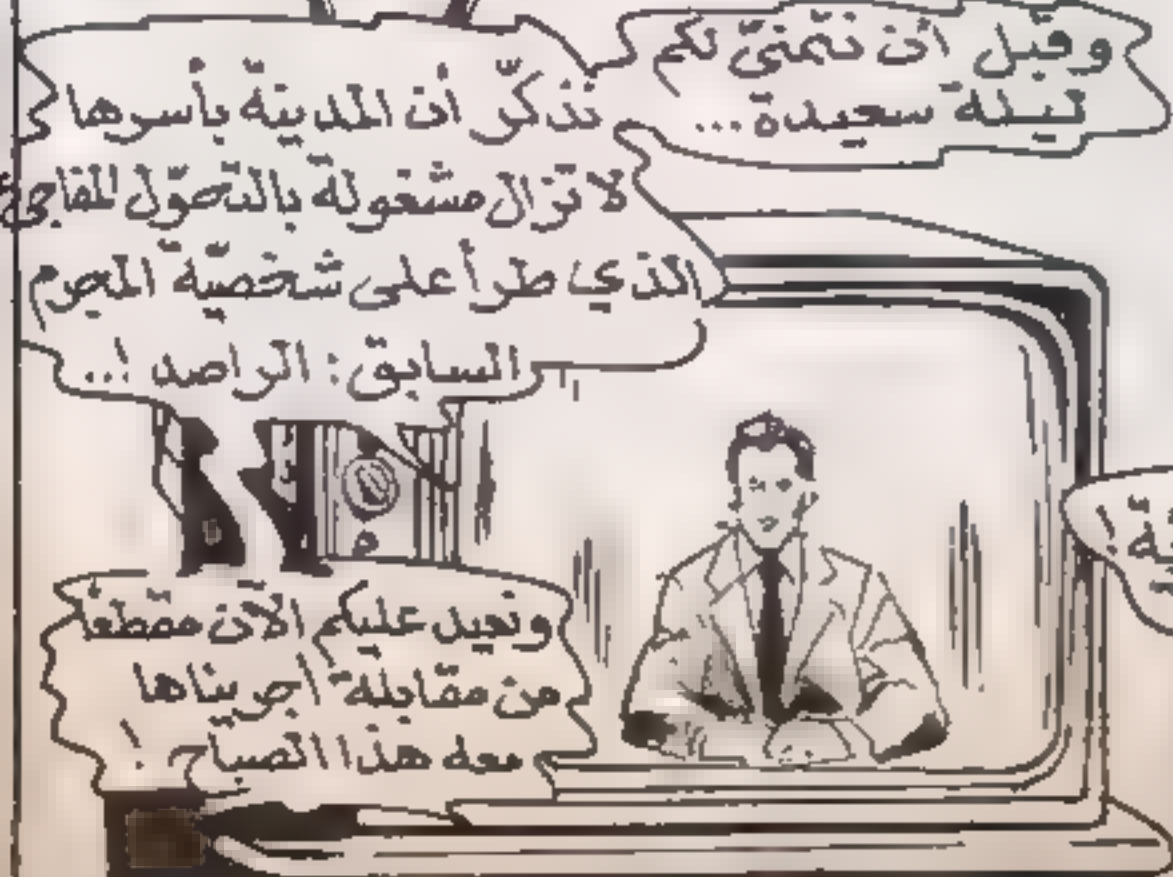 وقبل أن نتمنىّ لكم
ليلة سعيدة...
نذكّر أن المدينة بأسرها
لا تزال مشغولة بالتحوّل المفاجئ
الذي طرأ على شخصيّة المجرم
السابق: الراصد !..
ونعيد عليكم الآن مقطعاً
من مقابلة اجريناها
معه هذا الصباح !